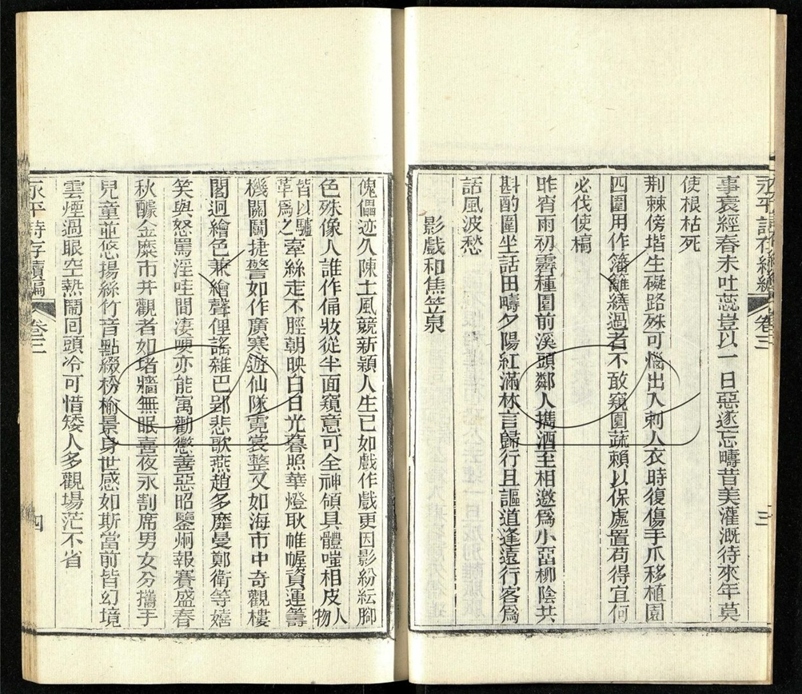 永平詩存續編 卷三 三
事衰經春未吐蕊豈以一日惡遂忘疇昔美灌溉待來年莫
使根枯死
荆棘傍堦生礙路殊可惱出入刺人衣時復傷手爪移植園
四圍用作籓籬繞過者不敢窺園蔬賴以保處置苟得宜何
必伐使槁
昨宵雨初霽種園前溪頭鄰人攜酒至相邀爲小畱柳陰共
斟酌圍坐話田疇夕陽紅滿林言歸行且謳道逢遠行客爲
話風波愁
影戲和焦笠泉
傀儡迹久陳土風競新穎人生已如戲作戲更因影紛紜腳
色殊像人誰作俑妝從半面窺意可全神領具體嗤相皮人物
皆以驢革爲之牽絲走不脛朝映白日光暮照華燈耿帷幄資運籌
機關鬭捷警如作廣寒遊仙隊霓裳整又如海市中奇觀樓
閣迥繪色兼繪聲俚謠雜巴郢悲歌燕趙多靡曼鄭衛等嬉
笑與怒罵淫哇間淒哽亦能寓勸懲善惡昭鑒炯報賽盛春
秋釀金糜市井觀者如堵牆無眠喜夜永割席男女分攜手
兒童並悠揚絲竹音點綴枌榆景身世感如斯當前皆幻境
雲煙過眼空熱鬧回頭冷可惜矮人多觀場茫不省
永平詩存續編 卷三 四